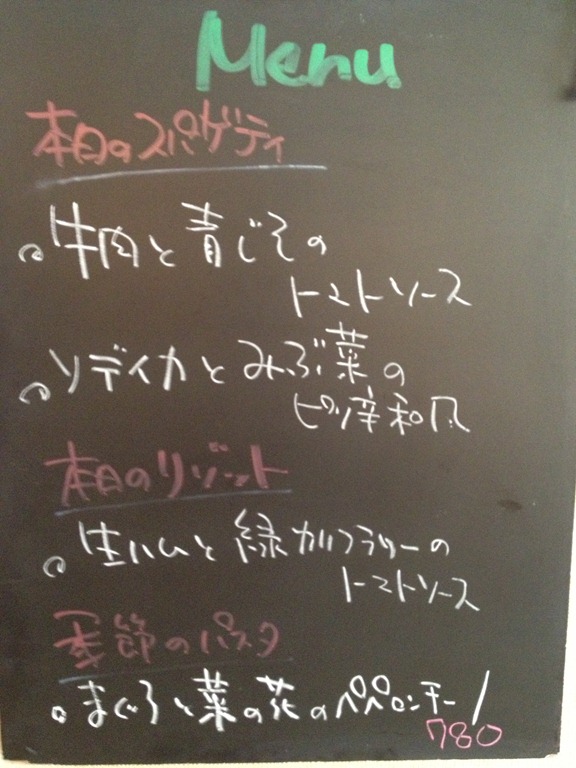 Menu
本日のスパゲティ
牛肉と青じその
トマトソース
ソデイカとみぶ菜の
ピリ辛和風
本日のリゾット
生ハムと緑カリフラワーの
トマトソース
季節のパスタ
まぐろと菜の花のペペロンチーノ
780